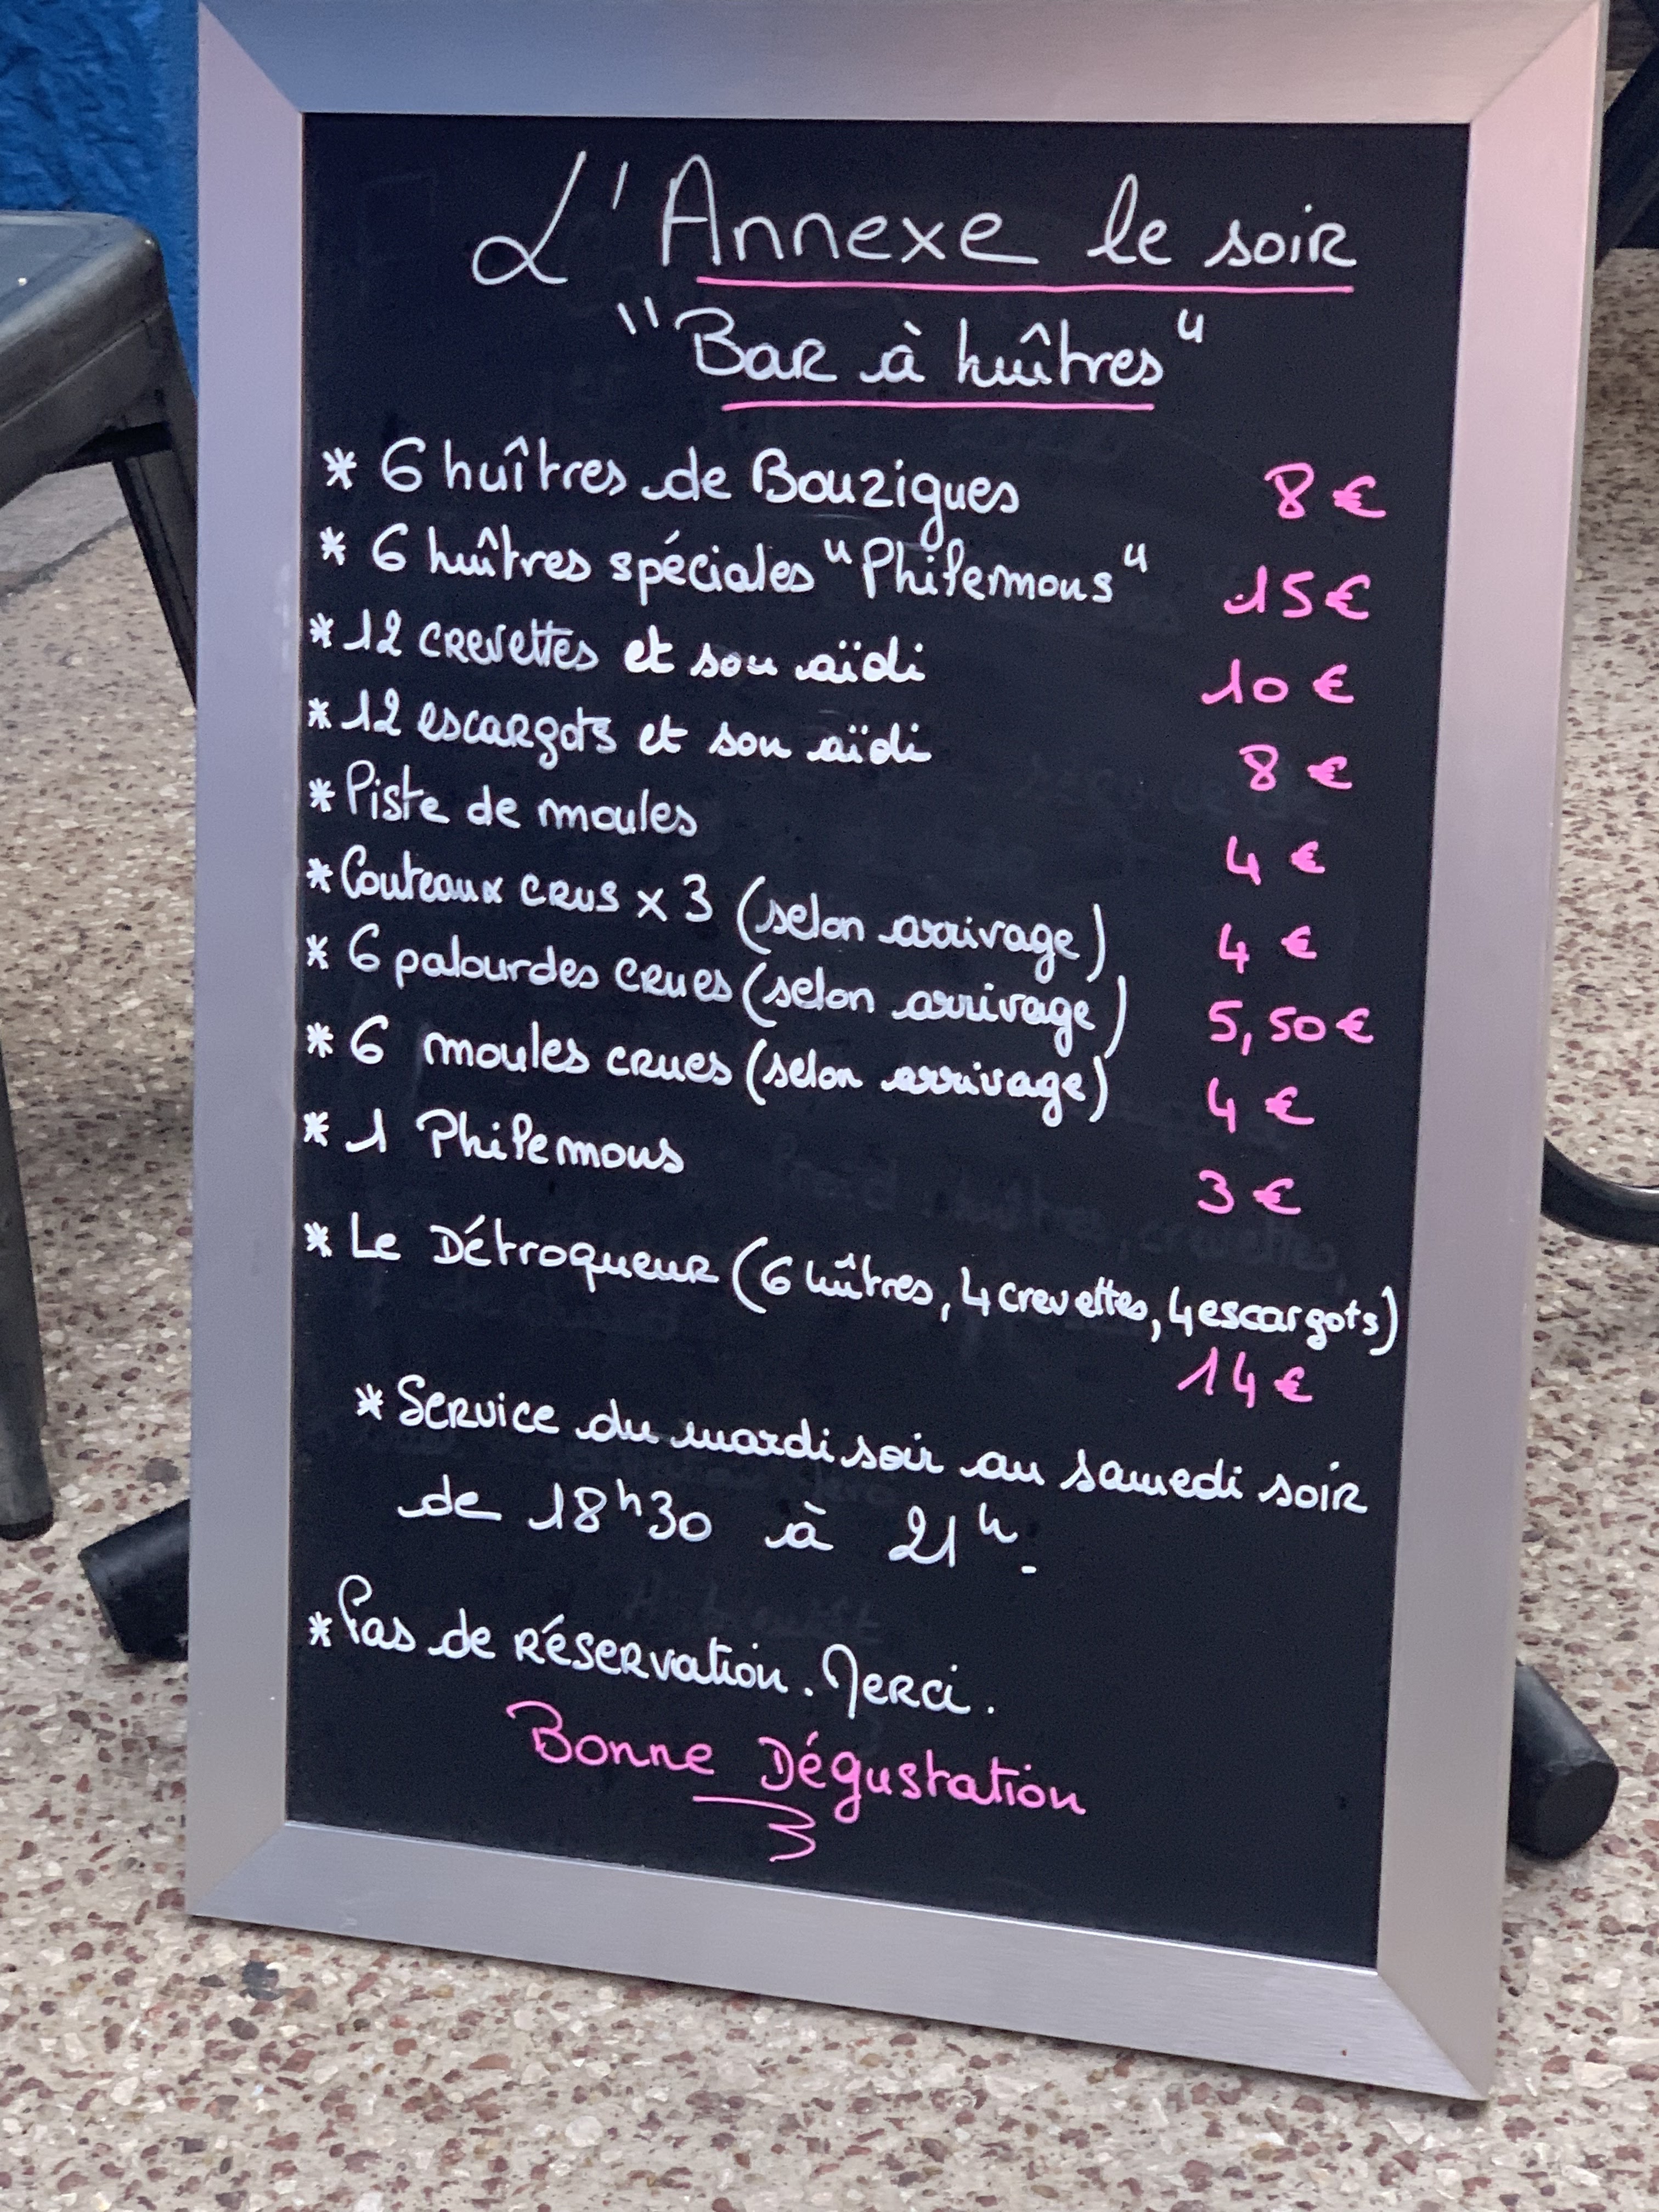 L'Annexe le soir
"Bar à huîtres"
* 6 huîtres de Bouzigues 8 €
* 6 huîtres spéciales "Philemous" 15 €
* 12 crevettes et son aïoli 10 €
* 12 escargots et son aïoli 8 €
* Piste de moules 4 €
* Couteaux crus x 3 (selon arrivage) 4 €
* 6 palourdes crues (selon arrivage) 5,50 €
* 6 moules crues (selon arrivage) 4 €
* 1 Philemous 3 €
* Le Détroqueur (6 huîtres, 4 crevettes, 4 escargots)
14 €
* Service du mardi soir au samedi soir
de 18h30 à 21h.
* Pas de réservation. Merci.
Bonne Dégustation